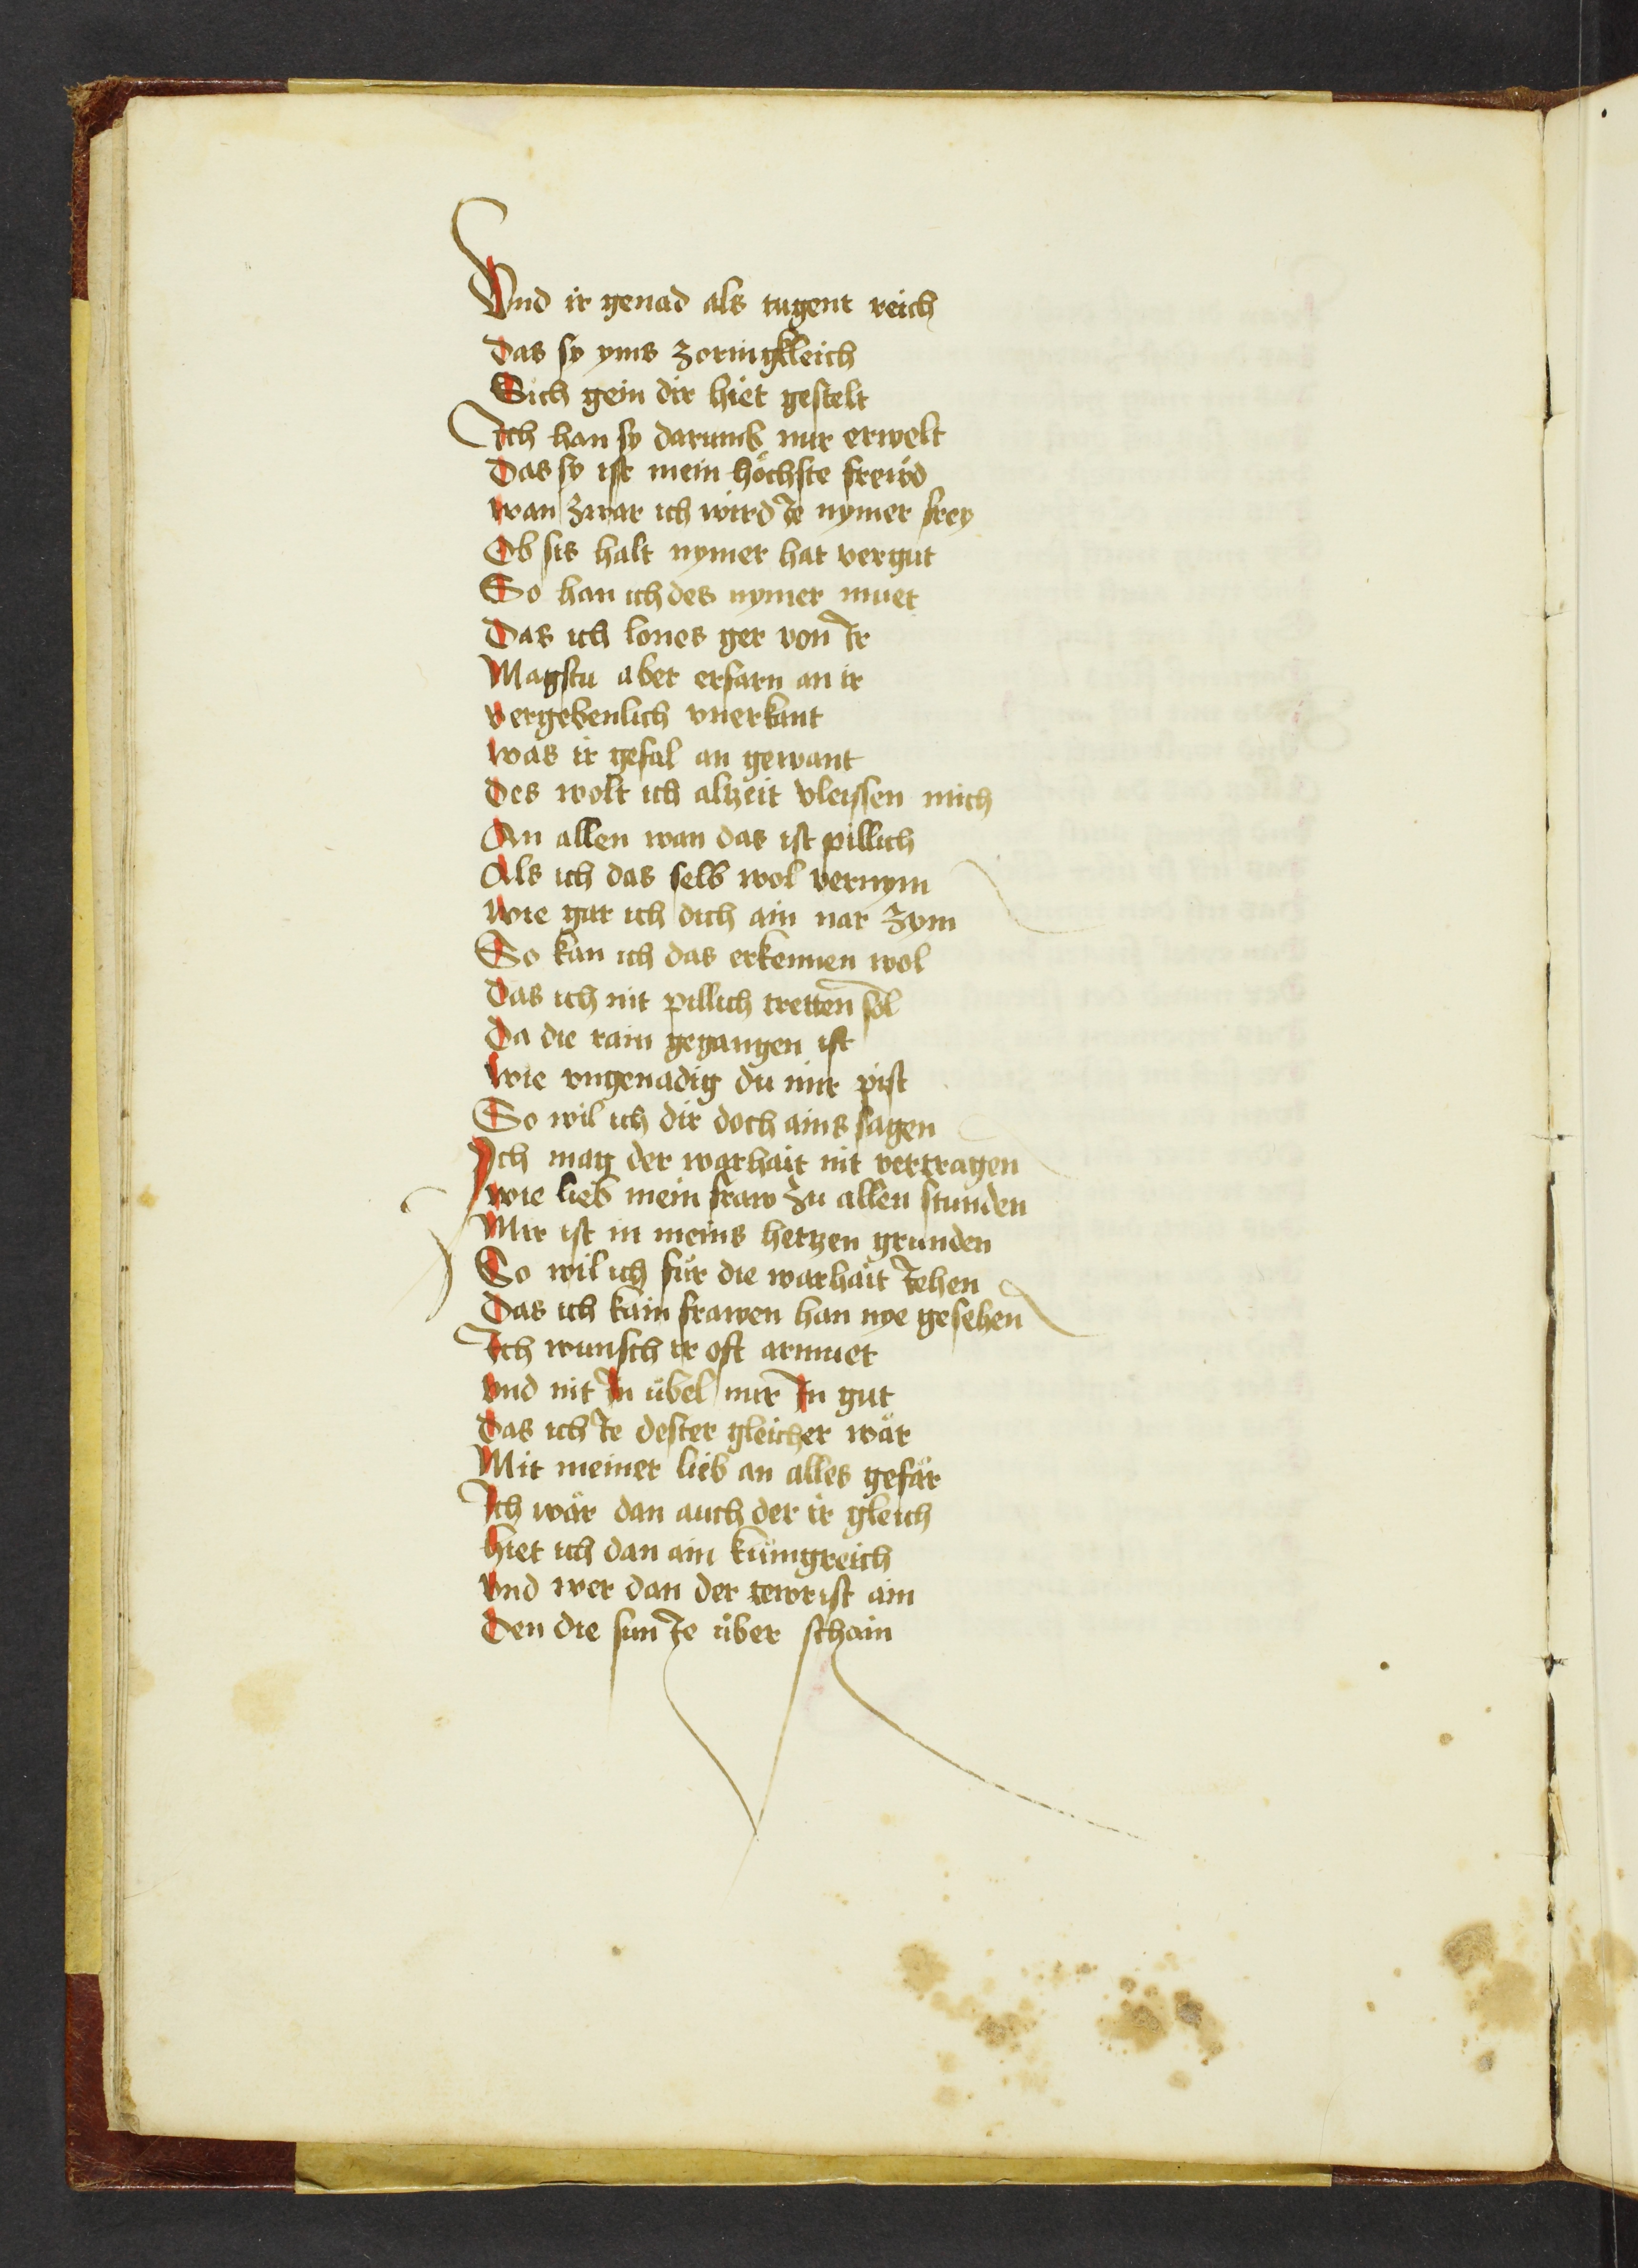 Vnd ir genad als tugent reich
Das sy yms zornigkleich
Sich gein dir hiet gestelt
Ich han sy darumb mir erwelt
Das sy ist mein höchste frewd
wan zwar ich wird Ir nymer frey
Ob sis halt nymer hat vergut
So han ich des nymer muet
Das ich lones ger von Ir
Magstu aber erfarn an ir
vergebenlich vnerkant
was ir gefal an gewant
Des wolt ich alzeit vleissen mich
An allen wan das ist pillich
Als ich das selb wol vernym
wie gar ich dich ain nar zym
So kan ich das erkennen wol
Das ich nit pillich tretten sol
Da die rain gegangen ist
wie vngenadig du mir pist
So wil ich dir doch ains sagen
Ich mag der warhait nit vertragen
wie lieb mein fraw zu allen stunden
Mir ist in meins hertzen grunden
So wil ich für die warhait Iehen
Das ich kain frawen han nye gesehen
Ich wunsch ir oft armuet
vnd nit In übel nur In gut
Das ich Ir dester gleicher wär
Mit meiner lieb an alles gefär
Ich wär dan auch der ir gleich
hiet ich dan ain künigreich
vnd wer dan der tewrist ain
Den die sun Ie über schain